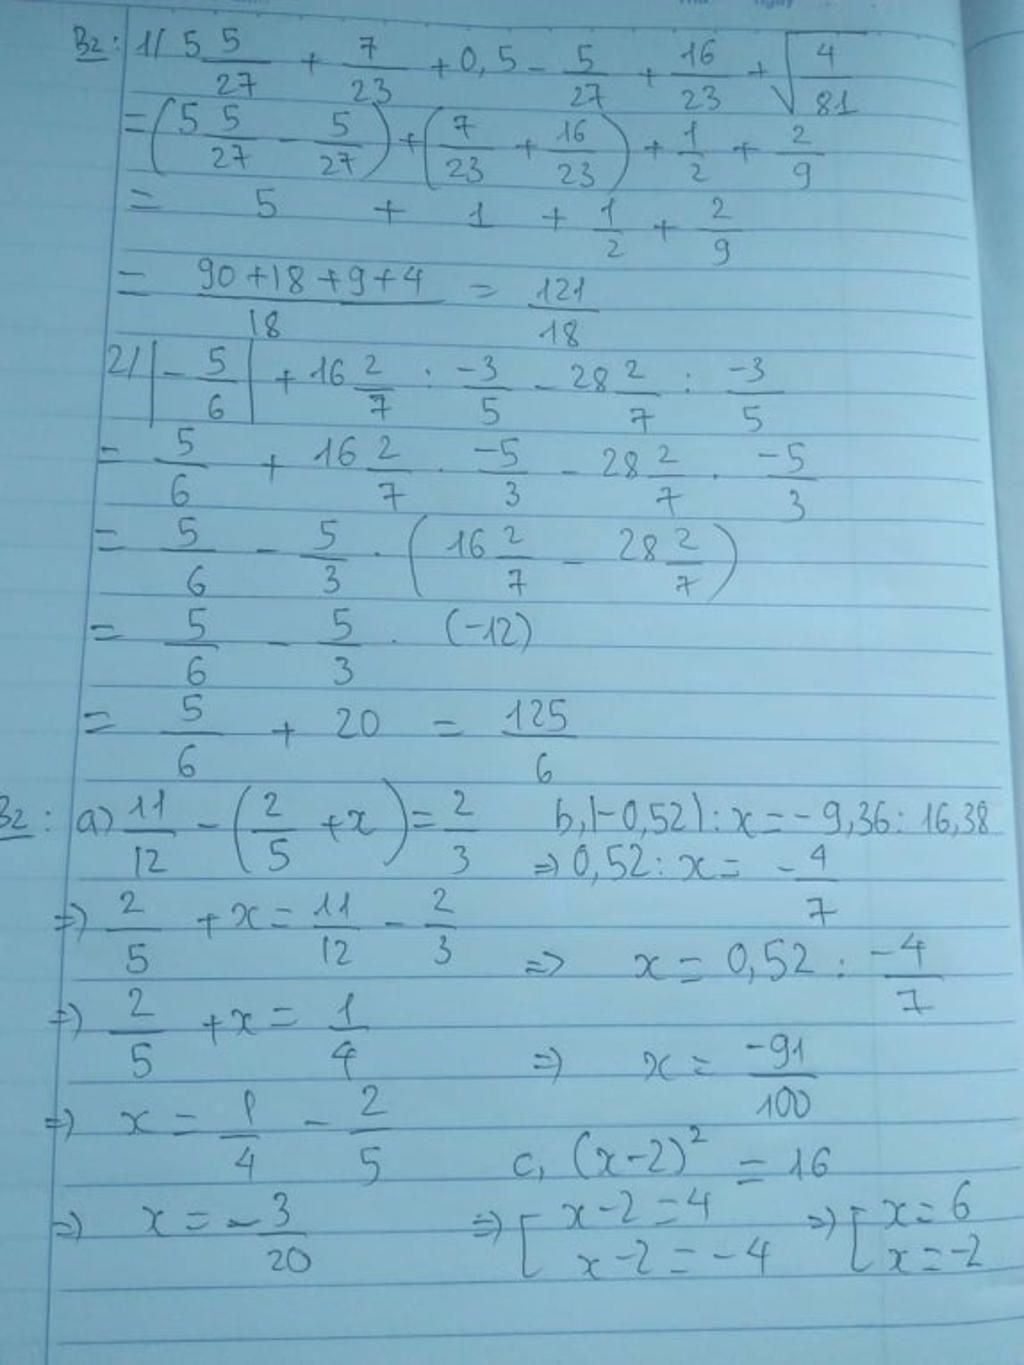 B2: 1/ 5 5/27 + 7/23 + 0,5 - 5/27 + 16/23 + √(4/81)
= (5 5/27 - 5/27) + (7/23 + 16/23) + 1/2 + 2/9
= 5 + 1 + 1/2 + 2/9
= (90+18+9+4)/18 = 121/18
2/ |-5/6| + 16 2/7 : -3/5 - 28 2/7 : -3/5
= 5/6 + 16 2/7 . -5/3 - 28 2/7 . -5/3
= 5/6 - 5/3 . (16 2/7 - 28 2/7)
= 5/6 - 5/3 . (-12)
= 5/6 + 20 = 125/6
B2: a) 11/12 - (2/5 + x) = 2/3
=> 2/5 + x = 11/12 - 2/3
=> 2/5 + x = 1/4
=> x = 1/4 - 2/5
=> x = -3/20
b, |-0,52| : x = -9,36 : 16,38
=> 0,52 : x = -4/7
=> x = 0,52 : -4/7
=> x = -91/100
c, (x-2)² = 16
=> [ x-2 = 4 => [ x = 6
x-2 = -4 x = -2